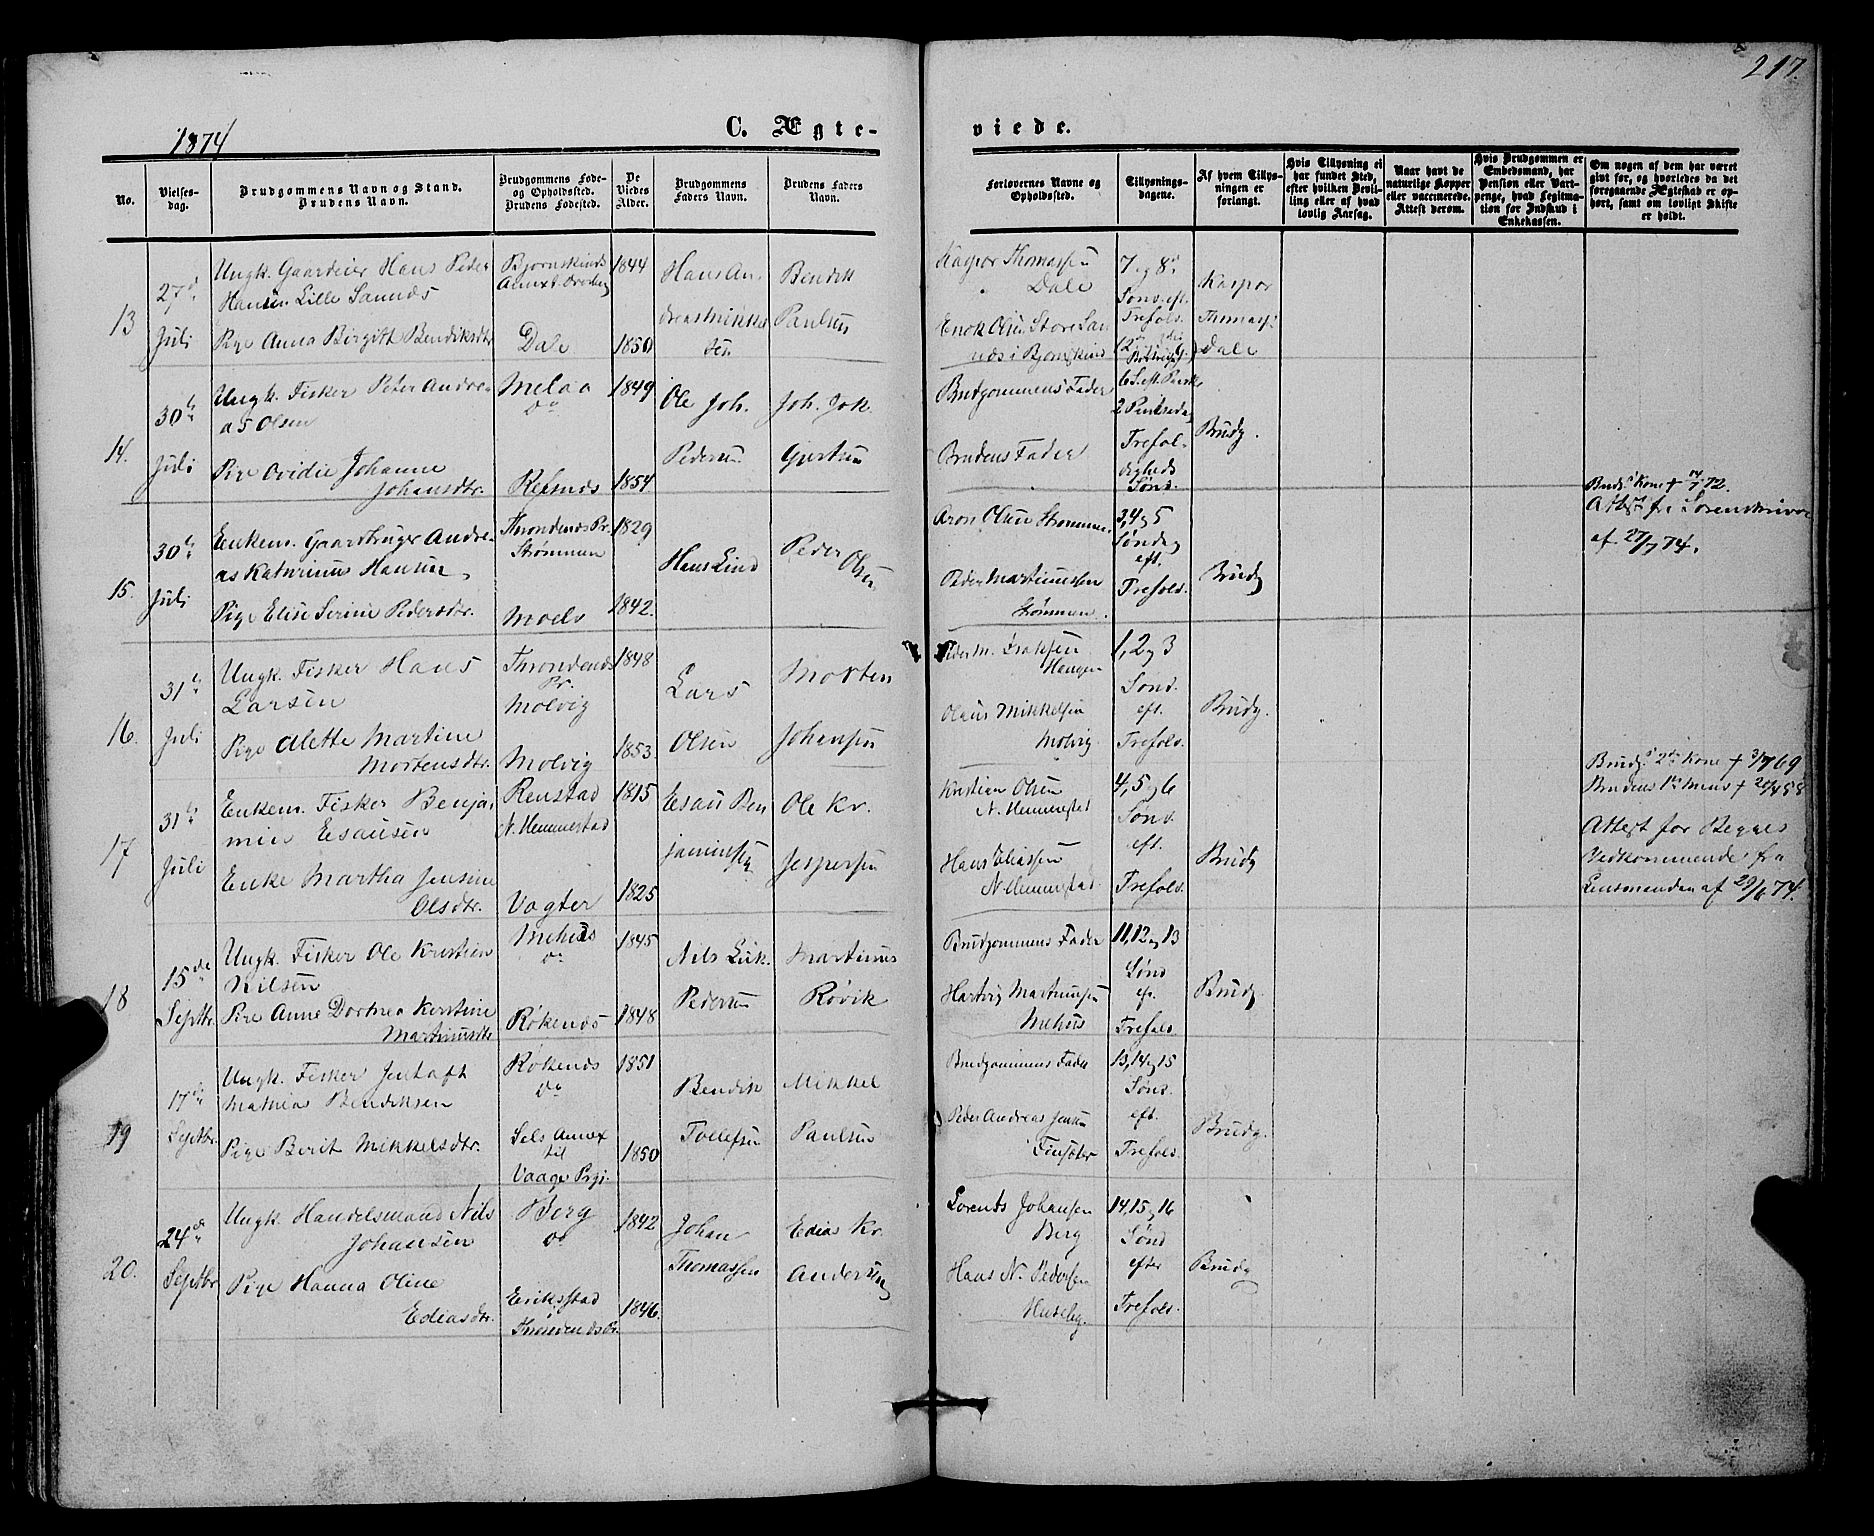 217.
1874
C. Ægte-
viede.
No.
Vielses-
dag.
Brudgommens Navn og Stand.
Brudens Navn.
Brudgommens Føde-
og Opholdssted.
Brudens Fødested.
De
Viedes
Alder.
Brudgommens
Faders Navn.
Brudens Faders
Navn.
Forlovernes Navne og
Opholdssted.
Tillysnings-
dagene.
Af hvem Tillys-
ningen er
forlangt.
Hvis Tillysning ei
har fundet Sted,
efter hvilken Bevil-
ling eller af hvad
lovlig Aarsag.
Naar havt de
naturlige Kopper
eller vaccinerede.
Attest derom.
Hvis Brudgommen er
Embedsmand, har
Pension eller Vart-
penge, hvad Legitima-
tion for Indskud i
Enkekassen.
Om nogen af dem har været
givt før, og hvorledes da det
foregaaende Ægteskab er op-
hørt, samt om lovligt Skifte
er holdt.
13
27de
Juli
Ungk. Gaardeier Hans Peder
Hansen Lille Sannds
Pige Anna Birgith Bendiksdtr
Bjørnskinds
Annex
Dale
1844
1850
Hans An-
dreas Mikkel
sen
Bendik
Paulsen
Kaspar Thomassen
Dale
Enok Olsen Store San
næs i Bjørnskind
7 og 8de
Sønd. eft.
Trefold.
Kaspar
Thomass.
Dale
14.
30te
Juli
Ungk. Fisker Peter Andre-
as Olsen
Pige Ovidie Johanne
Johansdtr.
Melaa
do
Refsnæs
1849
1854
Ole Joh.
Pedersen
Joh. Jak.
Gjertsen
Brudgommens Fader
Brudens Fader
6 S. eft. Paaske
2 Pintsedag
Trefol-
digheds
Sønd.
Brudg.
15.
30te
Juli
Enkem. Gaardbruger Andre-
as Kathrinus Hansen
Pige Elise Serine Pedersdtr.
Throndenæs Pr.
Strømmen
Moels
1829
1842.
Hans Lind
Peder
Olsen
Aron Olsen Strømmen.
Peder Martinussen
Strømmen.
3, 4 og 5
Søndag
eft.
Trefold.
Brudg
Brudg.s Kone † 14/7 72.
Attest fra Sorenskriver
af 27/7 74.
16.
31te
Juli
Ungk. Fisker Hans
Larsen
Pige Alette Martine
Mortensdtr.
Throndenæs
Pr.
Molvig
Molvig
1848
1853
Lars
Olsen
Morten
Johansen
Peder M. Isaksen
Haugen
Olaus Mikkelsen
Molvig
1, 2 og 3
Sønd.
eft.
Trefold.
Brudg.
17
31te
Juli
Enkem. Fisker Benja-
min Esausen
Enke Martha Jensine
Olsdtr.
Renstad
N. Hemmestad
Vagter
1815
1825
Esau Ben
jaminsen
Ole Kr.
Jespersen
Kristian Olsen
N. Hemmestad
Hans Eliassen
N. Hemmestad.
4, 5 og 6
Sønd.
eft.
Trefold.
Brudg
Brudg.s 2den Kone † 3/7 69
Brudens 1ste Mand † 20/4 58
Attest for Begges
Vedkommende fra
Lensmanden af 29/6 74.
18
15de
Septbr.
Ungk. Fisker Ole Kristian
Nilsen
Pige Anne Dorthea Kerstine
Martinusdtr
Mehus
do
Røkenæs
1845
1848
Nils Lük.
Pedersen
Martinus
Røvik
Brudgommens Fader
Hartvig Martinussen
Mehus
11, 12 og 13
Sønd
ef.
Trefold.
Brudg.
19
17de
Septbr.
Ungk. Fisker Jentoft
Mathias Bendiksen
Pige Berit Mikkelsdtr.
Røkenæs
do
Sels Annex
til
Vaage Prgj.
1851
1850
Bendik
Tollefsen
Mikkel
Paulsen
Brudgommens Fader
Peder Andreas Jensen
Finsæter
13, 14 og 15
Sønd.
eft.
Trefold.
Brudg.
20.
24de
Septbr
Ungk. Handelsmand Nils
Johansen
Pige Hanna Oline
Ediasdtr.
Berg
do
Eriksstad
Throndenæs Pr.
1842
1846.
Johan
Thomassen
Edias Kr.
Andersen
Lorents Johansen
Berg
Hans N. Pedersen
Huseby.
14, 15 og 16
Sønd
efter
Trefold.
Brudg